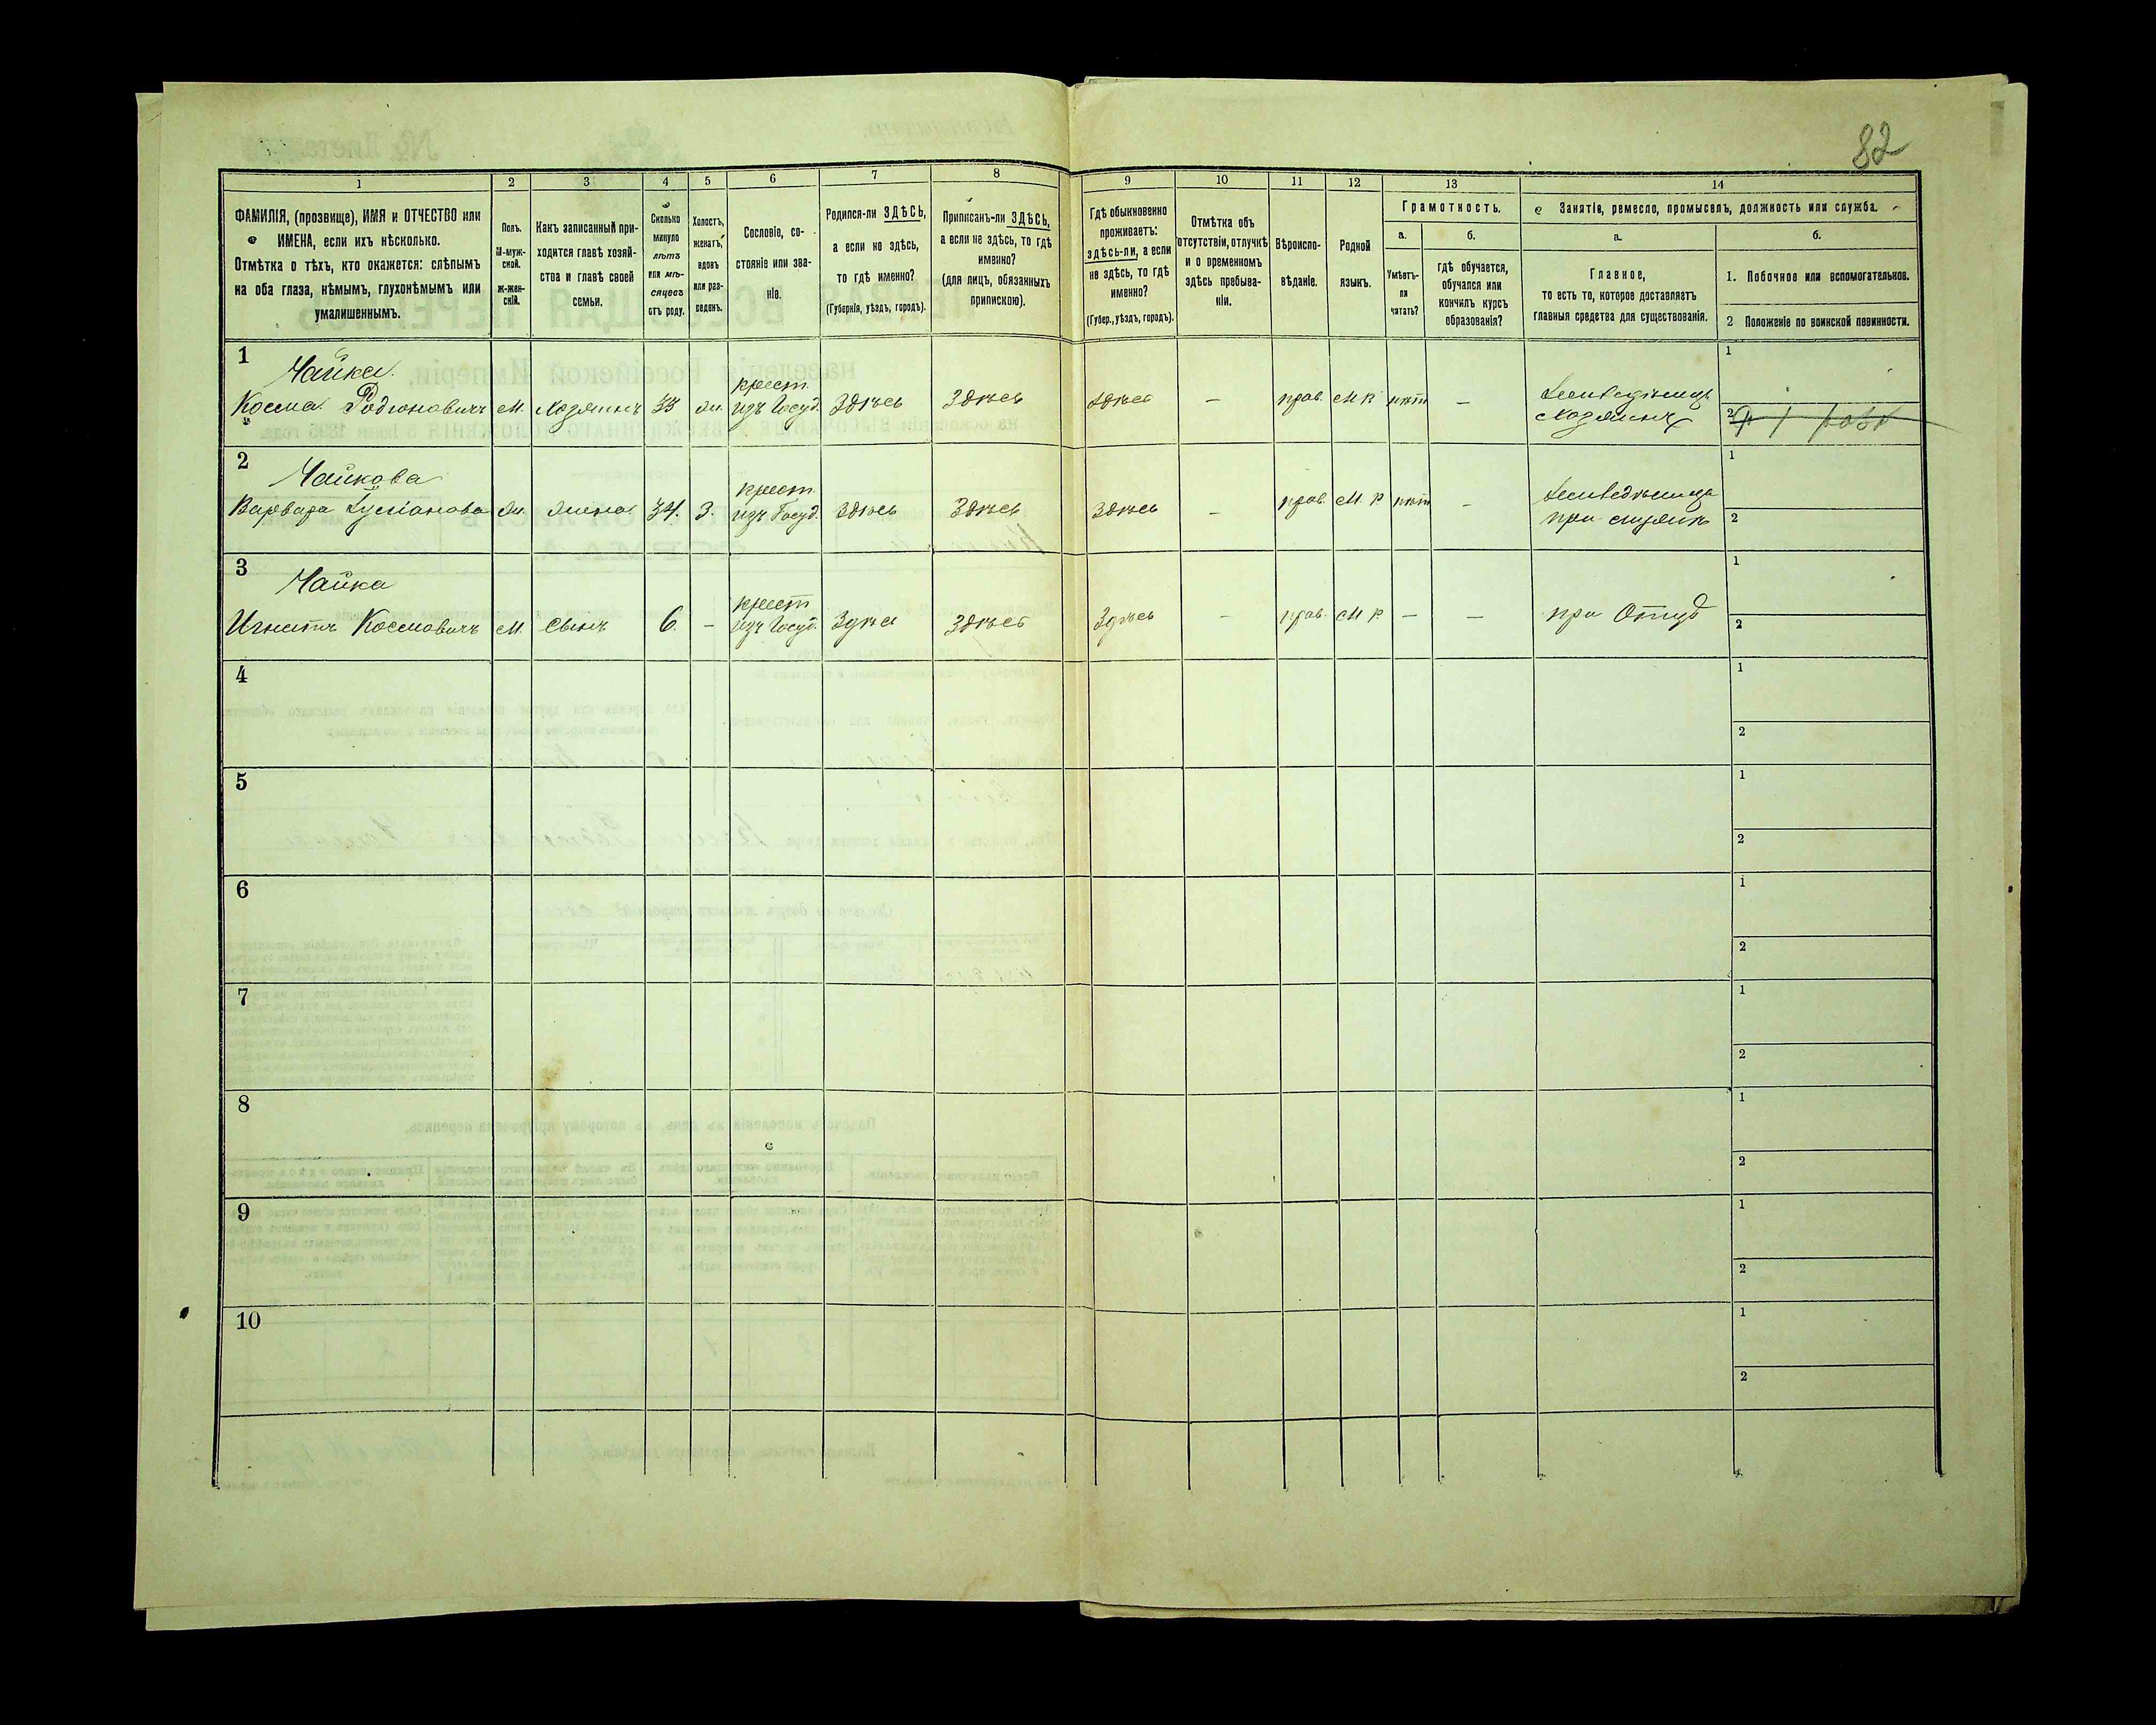 82
1 2 3 4 5 6 7 8 9 10 11 12 13 14
ФАМИЛІЯ, (прозвище), ИМЯ и ОТЧЕСТВО или
ИМЕНА, если ихъ нѣсколько.
Отмѣтка о тѣхъ, кто окажется: слѣпымъ
на оба глаза, нѣмымъ, глухонѣмымъ или
умалишеннымъ.
Полъ.
М-муж-
ской.
ж-жен-
скій.
Какъ записанный при-
ходится главѣ хозяй-
ства и главѣ своей
семьи.
Сколько
минуло
лѣтъ
или мѣ-
сяцевъ
отъ роду.
Холостъ,
женатъ,
вдовъ
или раз-
веденъ.
Сословіе, со-
стояніе или зва-
ніе.
Родился-ли ЗДѢСЬ,
а если не здѣсь,
то гдѣ именно?
(Губернія, уѣздъ, городъ).
Приписанъ-ли ЗДѢСЬ,
а если не здѣсь, то гдѣ
именно?
(для лицъ, обязанныхъ
припискою).
Гдѣ обыкновенно
проживаетъ:
здѣсь-ли, а если
не здѣсь, то гдѣ
именно?
(Губер., уѣздъ, городъ).
Отмѣтка объ
отсутствіи, отлучкѣ
и о временномъ
здѣсь пребыва-
ніи.
Вѣроиспо-
вѣданіе.
Родной
языкъ.
Грамотность.
а.
Умѣетъ-
ли
читать?
б.
гдѣ обучается,
обучался или
кончилъ курсъ
образованія?
Занятіе, ремесло, промыселъ, должность или служба.
а.
Главное,
то есть то, которое доставляетъ
главныя средства для существованія.
б.
1. Побочное или вспомогательное.
2 Положеніе по воинской повинности.
1
Чайка
крест.
Косма Родіоновичъ М. хозяинъ 33 ж. изъ Госуд. здѣсь здѣсь здѣсь — прав. М р нѣт —
Земледѣлецъ
хозяинъ
1
2
2
Чайкова
крест.
Варвара жена 34 З. изъ Госуд. здѣсь здѣсь здѣсь — прав. М р нѣт —
при мужѣ
1
2
3
Чайка
крест
Игнатъ Космовичъ М. сынъ 6 — изъ Госуд. здѣсь здѣсь здѣсь — прав. М р — — при Отцѣ
1
2
4
1
2
5
1
2
6
1
2
7
1
2
8
1
2
9
1
2
10
1
2